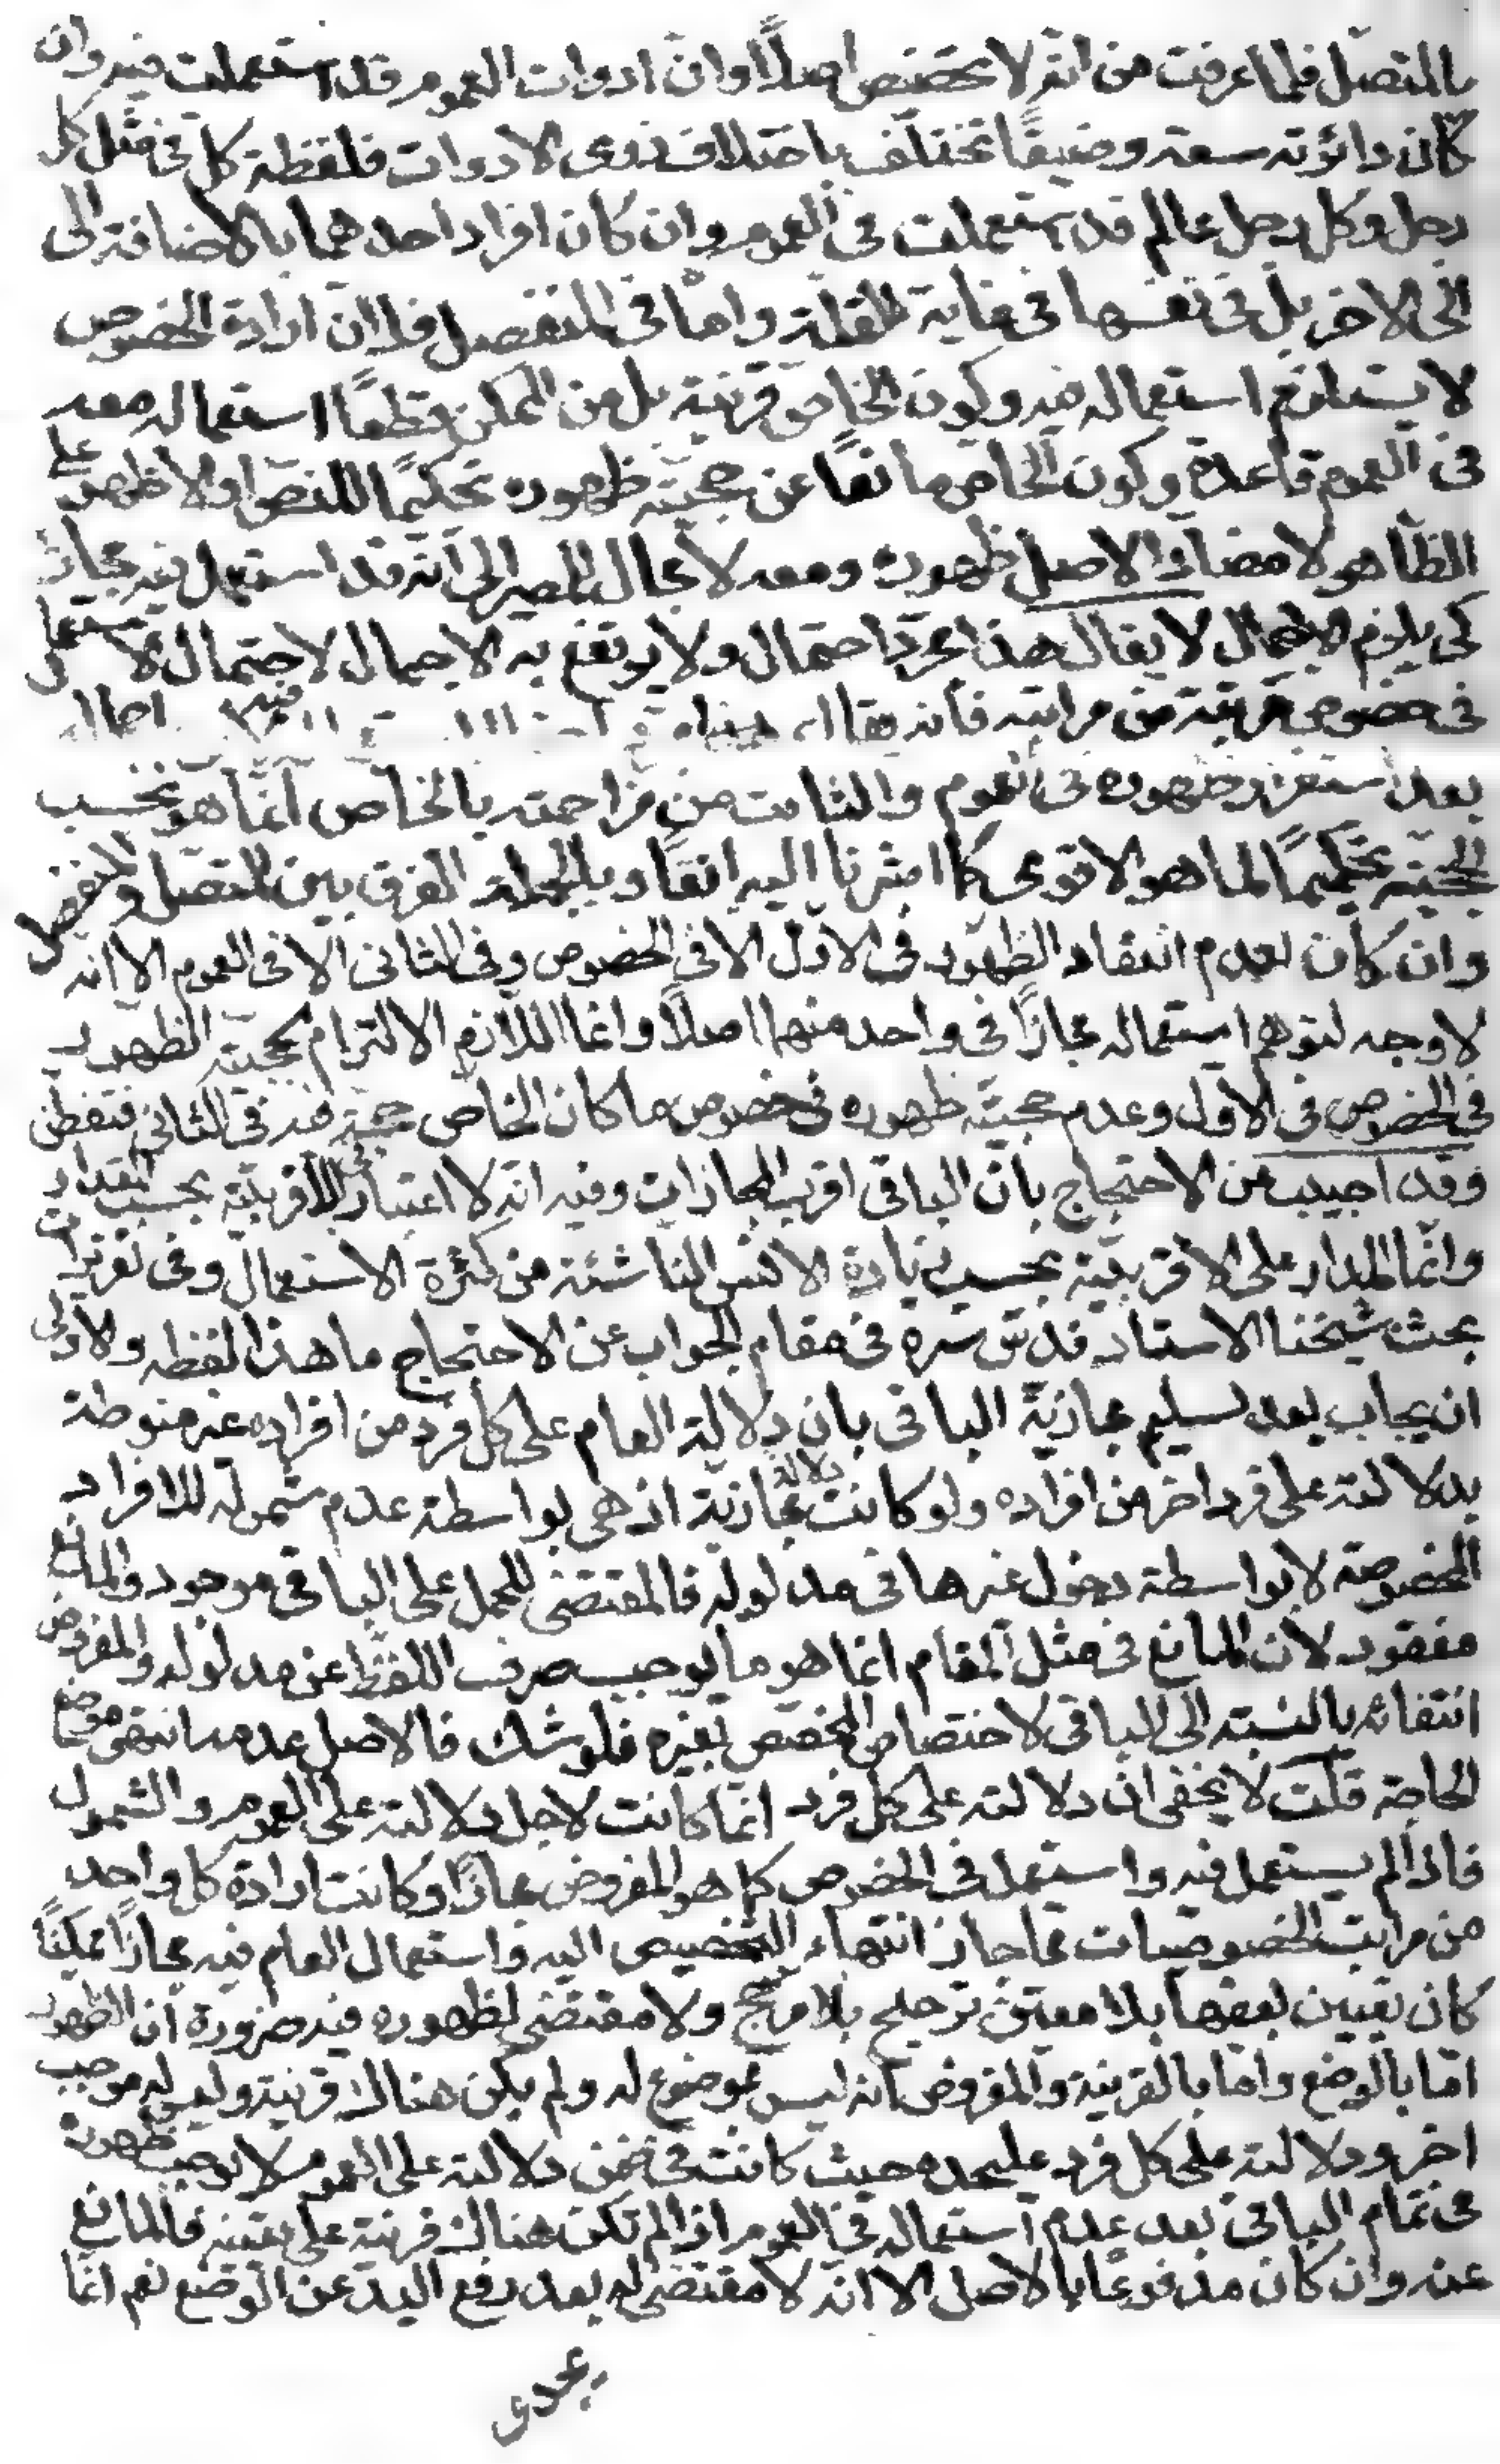 بالمتصل فلما عرفت من انه لا تخصيص اصلاً وان ادوات العموم قد استعملت فيه وان
كان دائرته سعة وضيقاً تختلف باختلاف ذوى الادوات فلفظة كل فى مثل كل
رجل وكل رجل عالم قد استعملت فى العموم وان كان افراد احدهما بالاضافة الى
الى الاخر بل فى نفسها فى غاية القلة واما فى المنفصل فلان ارادة الخصوص
لا يستلزم استعماله فيه وكون الخاص قرينة بل من الممكن قطعاً استعماله معه
فى العموم قاعدة وكون الخاص مانعاً عن حجية ظهوره تحكيماً للنص او الاظهر على
الظاهر لا مصادماً لاصل ظهوره ومعه لا مجال للمصير الى انه قد استعمل فيه مجازاً
كى يلزم الاجمال لا يقال هذا مجرد احتمال ولا يرتفع به الاجمال لاحتمال الاستعمال
فى خصوص مرتبة من مراتبه فانه يقال
بعد استقرار ظهوره فى العموم والثابت من مزاحمته بالخاص انما هو بحسب
الحجية تحكيماً لما هو الاقوى كما اشرنا اليه انفاً وبالجملة الفرق بين المتصل والمنفصل
وان كان لعدم انعقاد الظهور فى الاول الا فى الخصوص وفى الثانى الا فى العموم الا انه
لا وجه لتوهم استعماله مجازاً فى واحد منهما اصلاً وانما اللازم الالتزام بحجية الظهور
فى الخصوص فى الاول وعدم حجية ظهوره فى خصوص ما كان الخاص حجة فيه فى الثانى فتفطن
وقد اجيب عن الاحتجاج بان الباقى اقرب المجازات وفيه انه لا اعتبار فى الاقربية بحسب المقدار
وانما المدار على الاقربية بحسب زيادة الانس الناشئة من كثرة الاستعمال وفى تقريرات
بحث شيخنا الاستاد قدس سره فى مقام الجواب عن الاحتجاج ما هذا لفظه والاولى
ان يجاب بعد تسليم مجازية الباقى بان دلالة العام على كل فرد من افراده غير منوطة
بدلالته على فرد اخر من افراده ولو كانت دلالة مجازية اذ هى بواسطة عدم شموله للافراد
المخصوصة لا بواسطة دخول غيرها فى مدلوله فالمقتضى للحمل على الباقى موجود والمانع
مفقود لان المانع فى مثل المقام انما هو ما يوجب صرف اللفظ عن مدلوله والمفروض
انتفائه بالنسبة الى الباقى لاختصاص المخصص بغيره فلو شك فالاصل عدمه انتهى موضع
الحاجة قلت لا يخفى ان دلالته على كل فرد انما كانت لاجل دلالته على العموم والشمول
فاذا لم يستعمل فيه واستعمل فى الخصوص كما هو المفروض مجازاً وكانت ارادة كل واحد
من مراتب الخصوصيات مما جاز انتهاء التخصيص اليه واستعمال العام فيه مجازاً ممكناً
كان تعيين بعضها بلا معين ترجيح بلا مرجح ولا مقتضى لظهوره فيه ضرورة ان الظهور
اما بالوضع واما بالقرينة والمفروض انه ليس بموضوع له ولم يكن هناك قرينة وليس له موجب
اخر ودلالته على كل فرد عليحده حيث كانت فى ضمن دلالته على العموم لا يوجب ظهوره
فى تمام الباقى بعد عدم استعماله فى العموم اذا لم تكن هناك قرينة على تعيينه فالمانع
عنه وان كان مدفوعاً بالاصل الا انه لا مقتضى له بعد رفع اليد عن الوضع نعم انما
يجدى